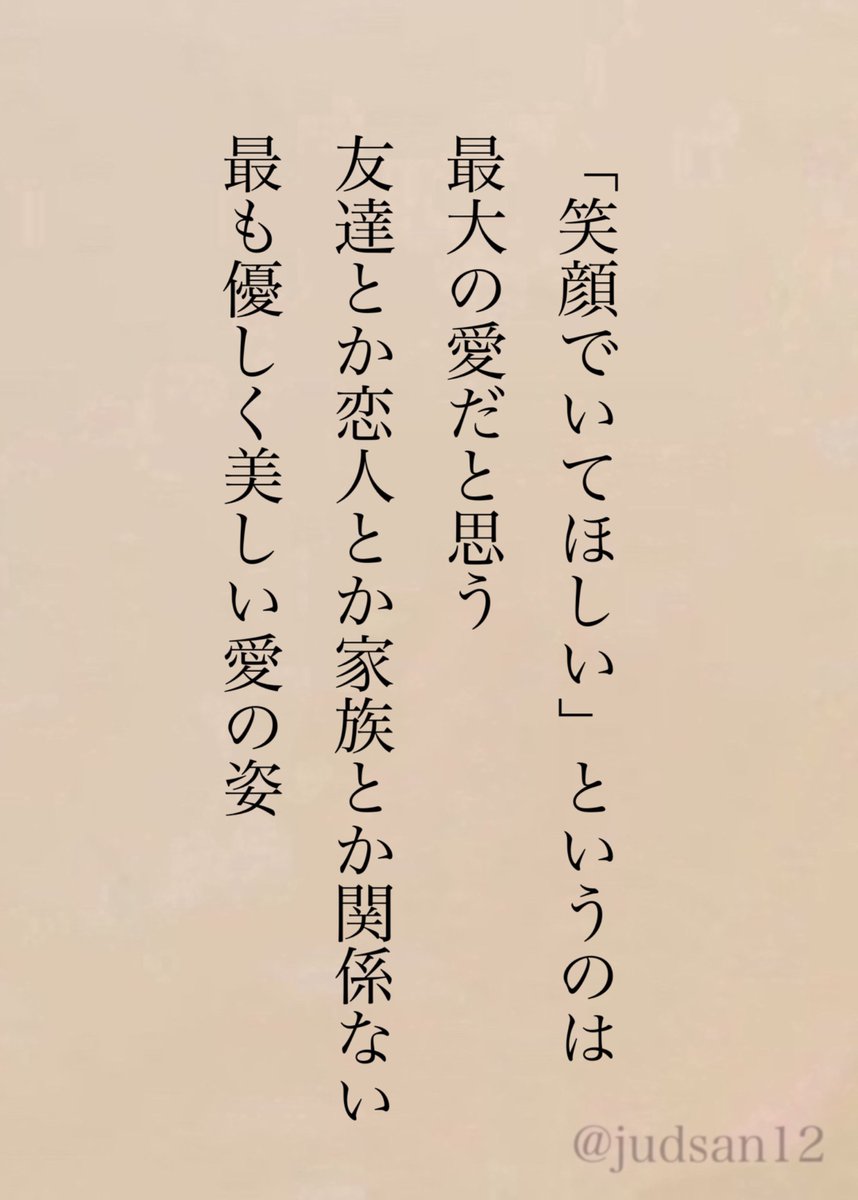 「笑顔でいてほしい」というのは
最大の愛だと思う
友達とか恋人とか家族とか関係ない
最も優しく美しい愛の姿
@judsan12